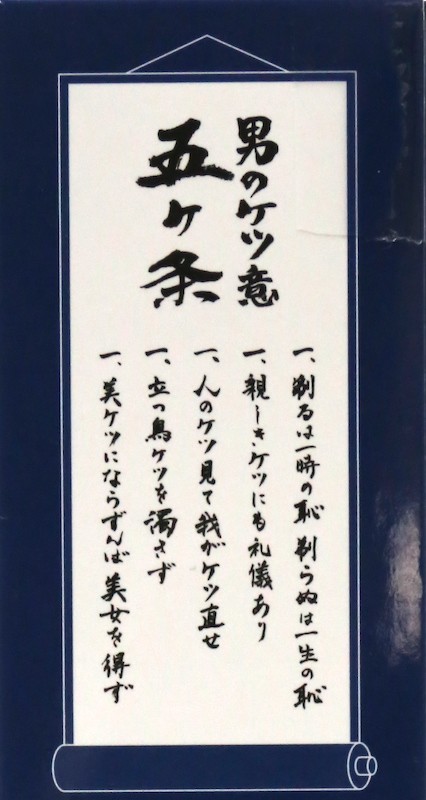 男のケツ意
五ケ条
一、剃るは一時の恥 剃らぬは一生の恥
一、親しきケツにも礼儀あり
一、人のケツ見て我がケツ直せ
一、立つ鳥ケツを濁さず
一、美ケツにならずんば美女を得ず